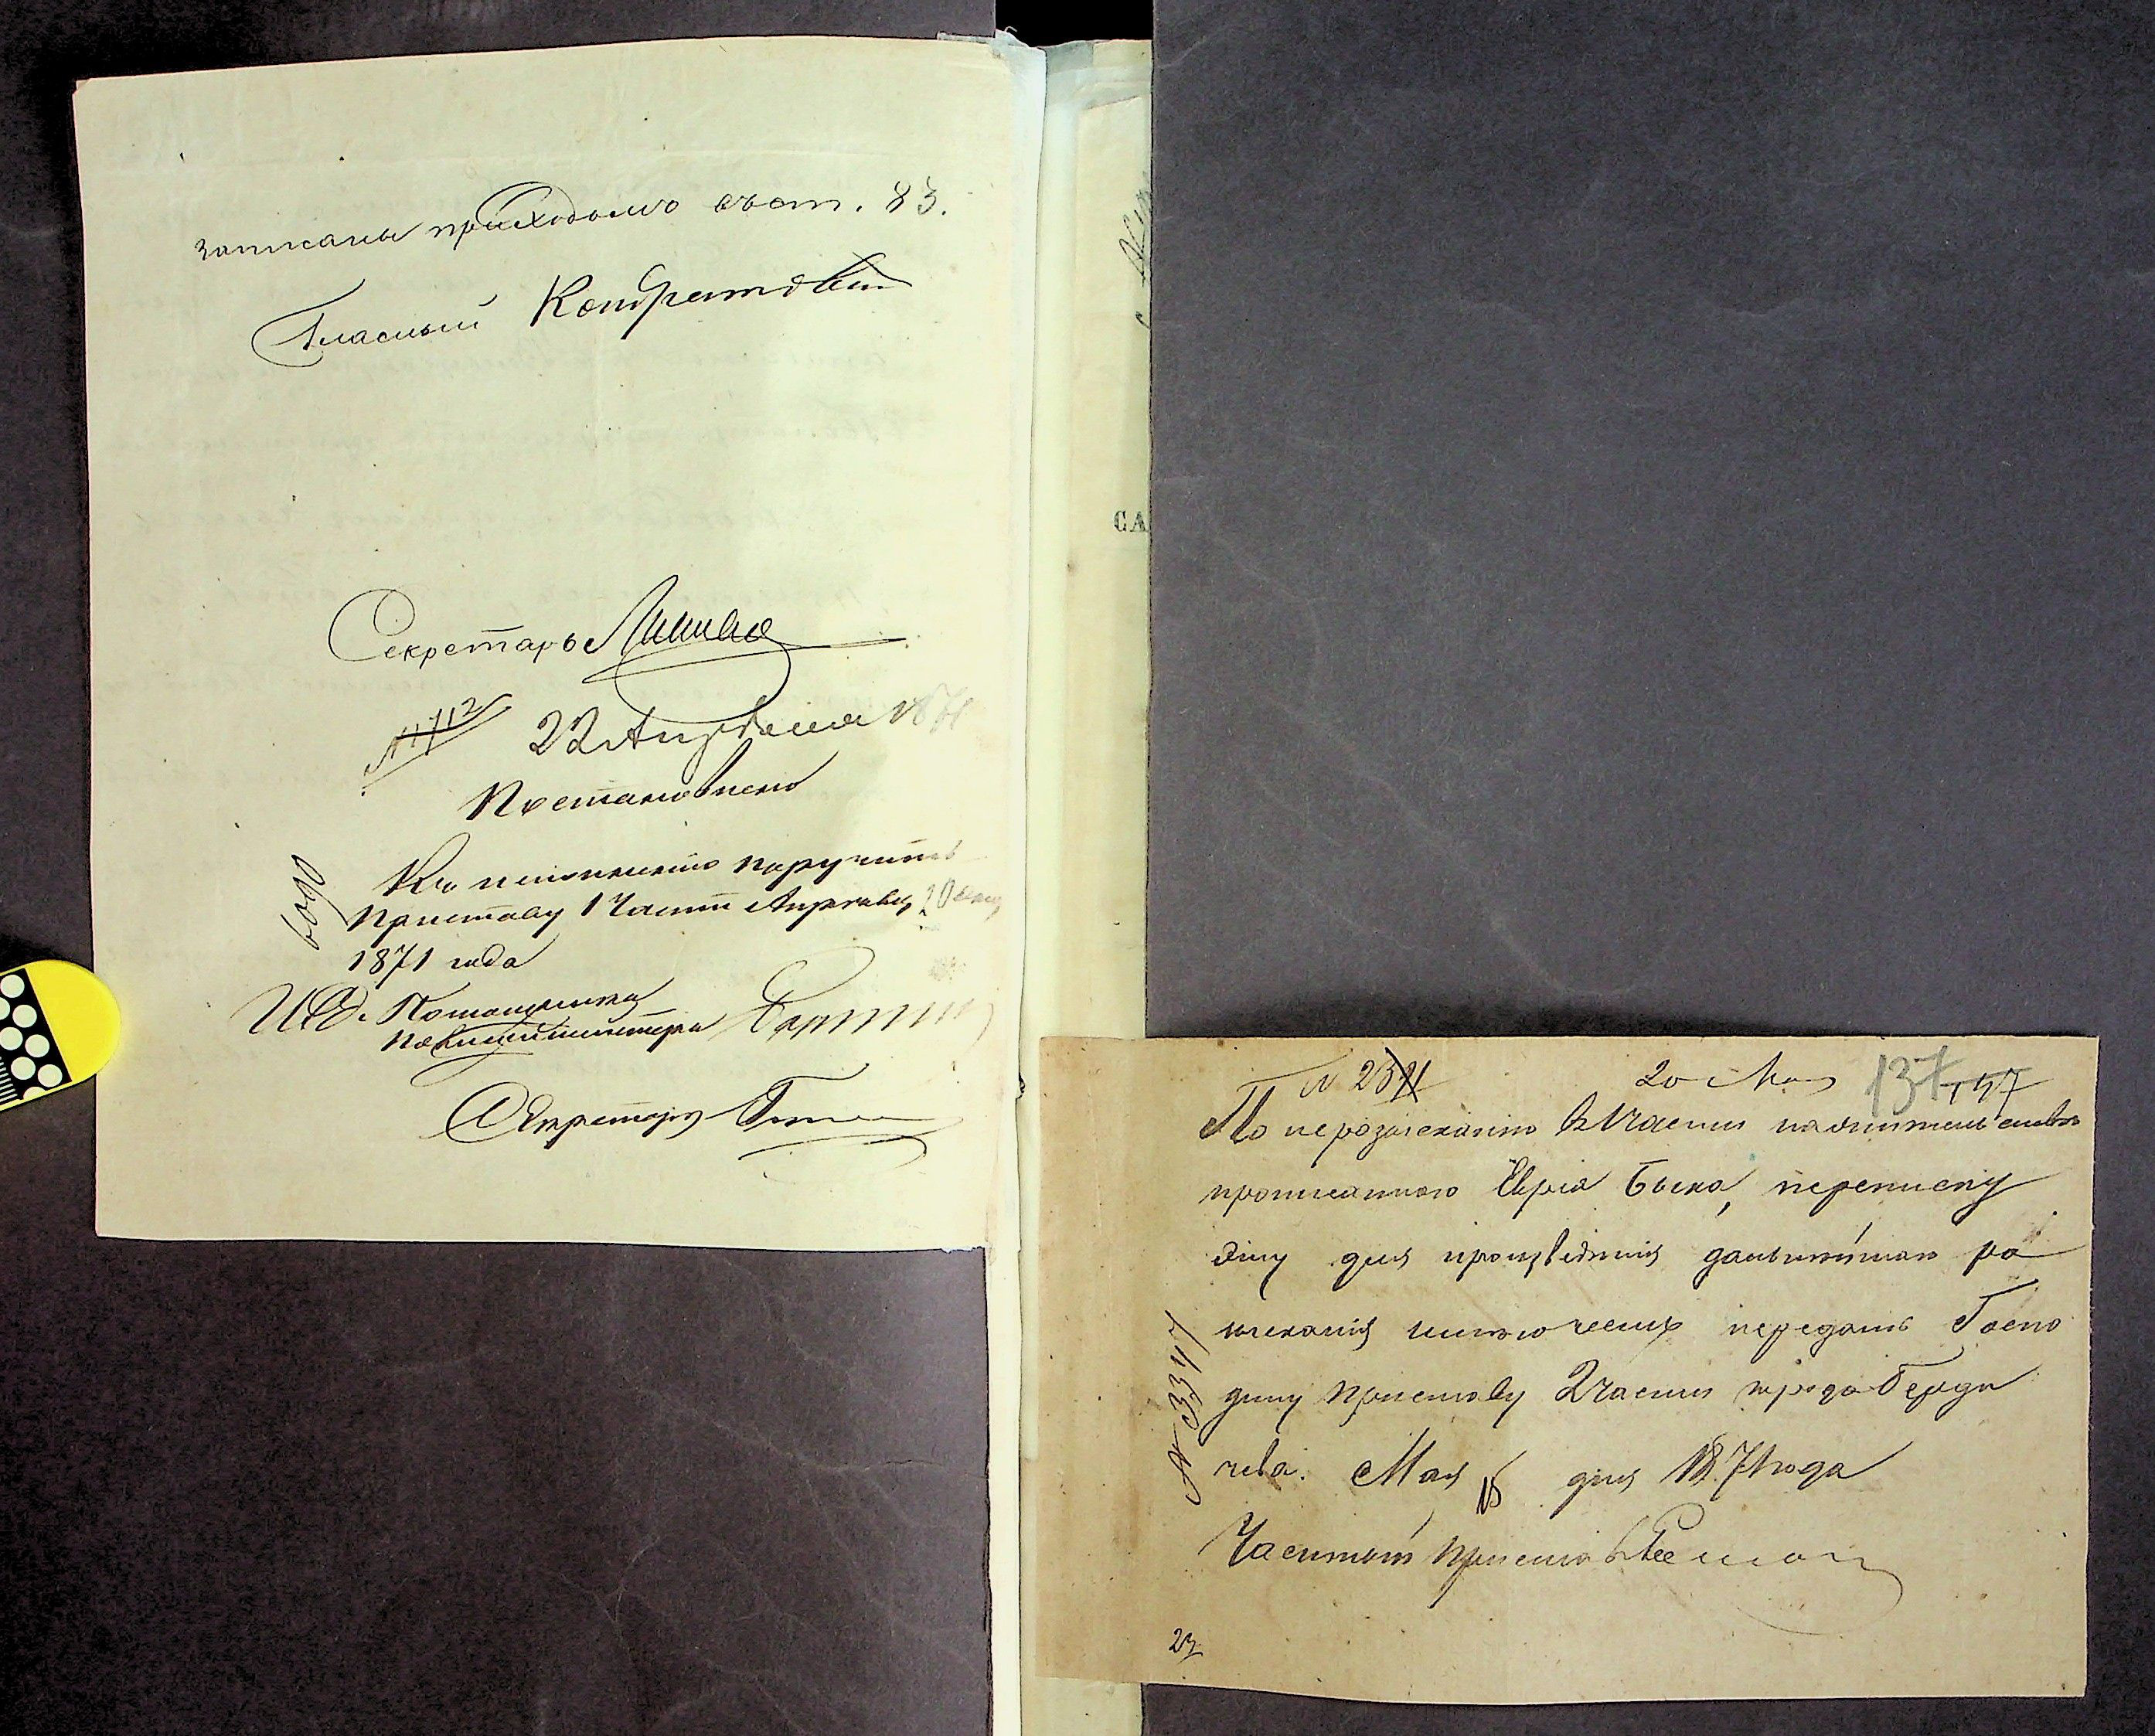 записаны приходомъ въ ст. 83.
Гласный Кондратовъ
Секретарь
№ 1712
22 Апреля 1871
Постановлено
Къ исполненію поручить
Приставу 1 Части Апреля 20 дня
1871 года
6090
И. Д. Помощника
Полицмейстера
Секретарь
№ 23
20 Мая 137
По нерозысканію въ 1 Части жительствомъ
прописанного Еврея Быка, переписку
сію для произведенія дальнѣйшаго ро
зысканія передать Госпо
дину Приставу 2 части города Берди
чева. Мая 15 дня 1871 года
Частный Приставъ
№ 3347
23
СА